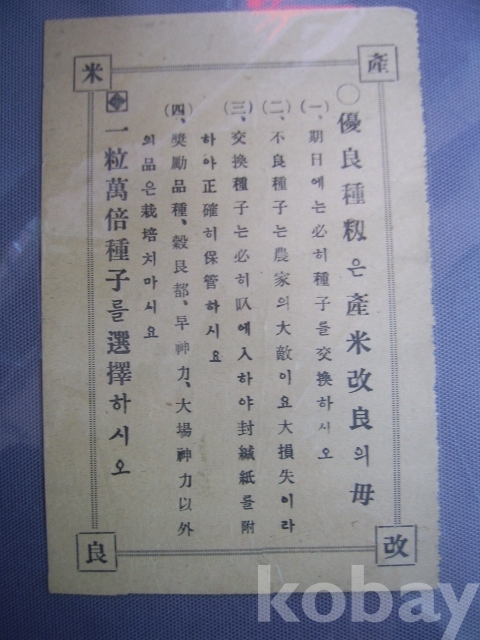 産米改良
○優良種籾은産米改良의母
(一)、期日에는必히種子를交換하시오
(二)、不良種子는農家의大敵이요大損失이라
(三)、交換種子는必히叺에入하야封緘紙를附
하야正確히保管하시요
(四)、奬勵品種、穀良都、早神力、大場神力以外
의品은栽培치마시요
一粒萬倍種子를選擇하시오
kobay